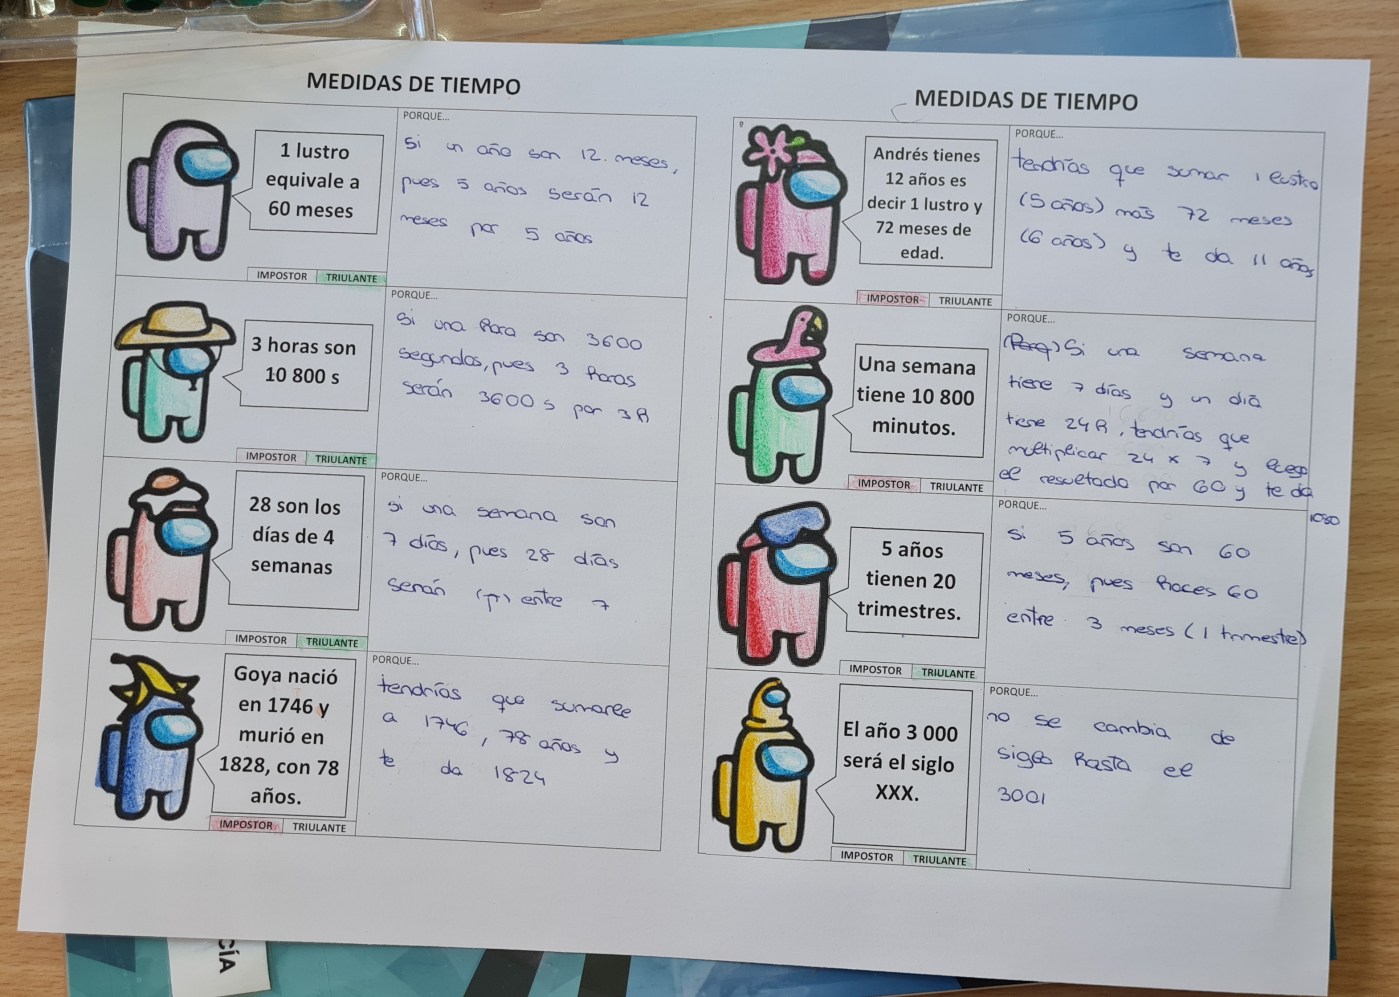 MEDIDAS DE TIEMPO
1 lustro
equivale a
60 meses
IMPOSTOR TRIULANTE
PORQUE...
Si un año son 12 meses,
pues 5 años serán 12
meses por 5 años
3 horas son
10 800 s
IMPOSTOR TRIULANTE
PORQUE...
Si una hora son 3600
segundos, pues 3 horas
serán 3600 s por 3 h
28 son los
días de 4
semanas
IMPOSTOR TRIULANTE
PORQUE...
Si una semana son
7 días, pues 28 días
serán entre 7
Goya nació
en 1746 y
murió en
1828, con 78
años.
IMPOSTOR TRIULANTE
PORQUE...
tendrías que sumarle
a 1746, 78 años y
te da 1824
MEDIDAS DE TIEMPO
Andrés tienes
12 años es
decir 1 lustro y
72 meses de
edad.
IMPOSTOR TRIULANTE
PORQUE...
tendrías que sumar 1 lustro
(5 años) más 72 meses
(6 años) y te da 11 años
Una semana
tiene 10 800
minutos.
IMPOSTOR TRIULANTE
PORQUE...
Si una semana
tiene 7 días y un día
tiene 24 h, tendrías que
multiplicar 24 x 7 y luego
el resultado por 60 y te da
5 años
tienen 20
trimestres.
IMPOSTOR TRIULANTE
PORQUE...
Si 5 años son 60
meses, pues haces 60
entre 3 meses (1 trimestre)
El año 3 000
será el siglo
XXX.
IMPOSTOR TRIULANTE
PORQUE...
no se cambia de
siglo hasta el
3001
CÍA